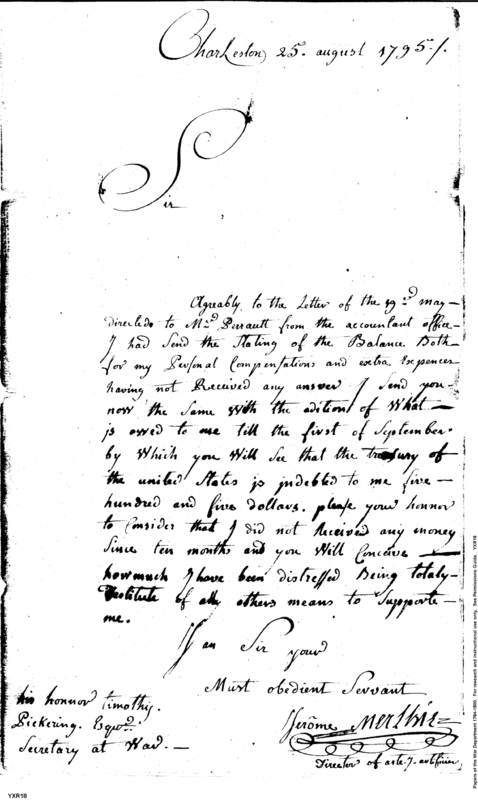 Charleston, 25. august 1795./.
Sir
Agreably to the Letter of the 19.d may
directed to Mr. Perrault from the accountant office
I had Send the Stating of the Balance Both
for my Personal Compensations and extra Expences
having not Received any answer I Send you
now the Same With the adition of What
is owed to me till the first of September.
by Which you Will See that the treasury of
the united States is indebted to me five
hundred and five dollars. please your honnor
to Consider that I did not Received any money
Since ten months and you Will Conceive
how much I have been distressed Being totaly
Destitute of all others means to Supporte
me.
I am Sir your
Must obedient Servant
his honnor timothy.
Pickering. Esqr.
Secretary at War.
Jerôme
Director of
YXR18
Papers of the War Department 1784-1800. For research and instructional use only. See Permissions Guide. YXR18